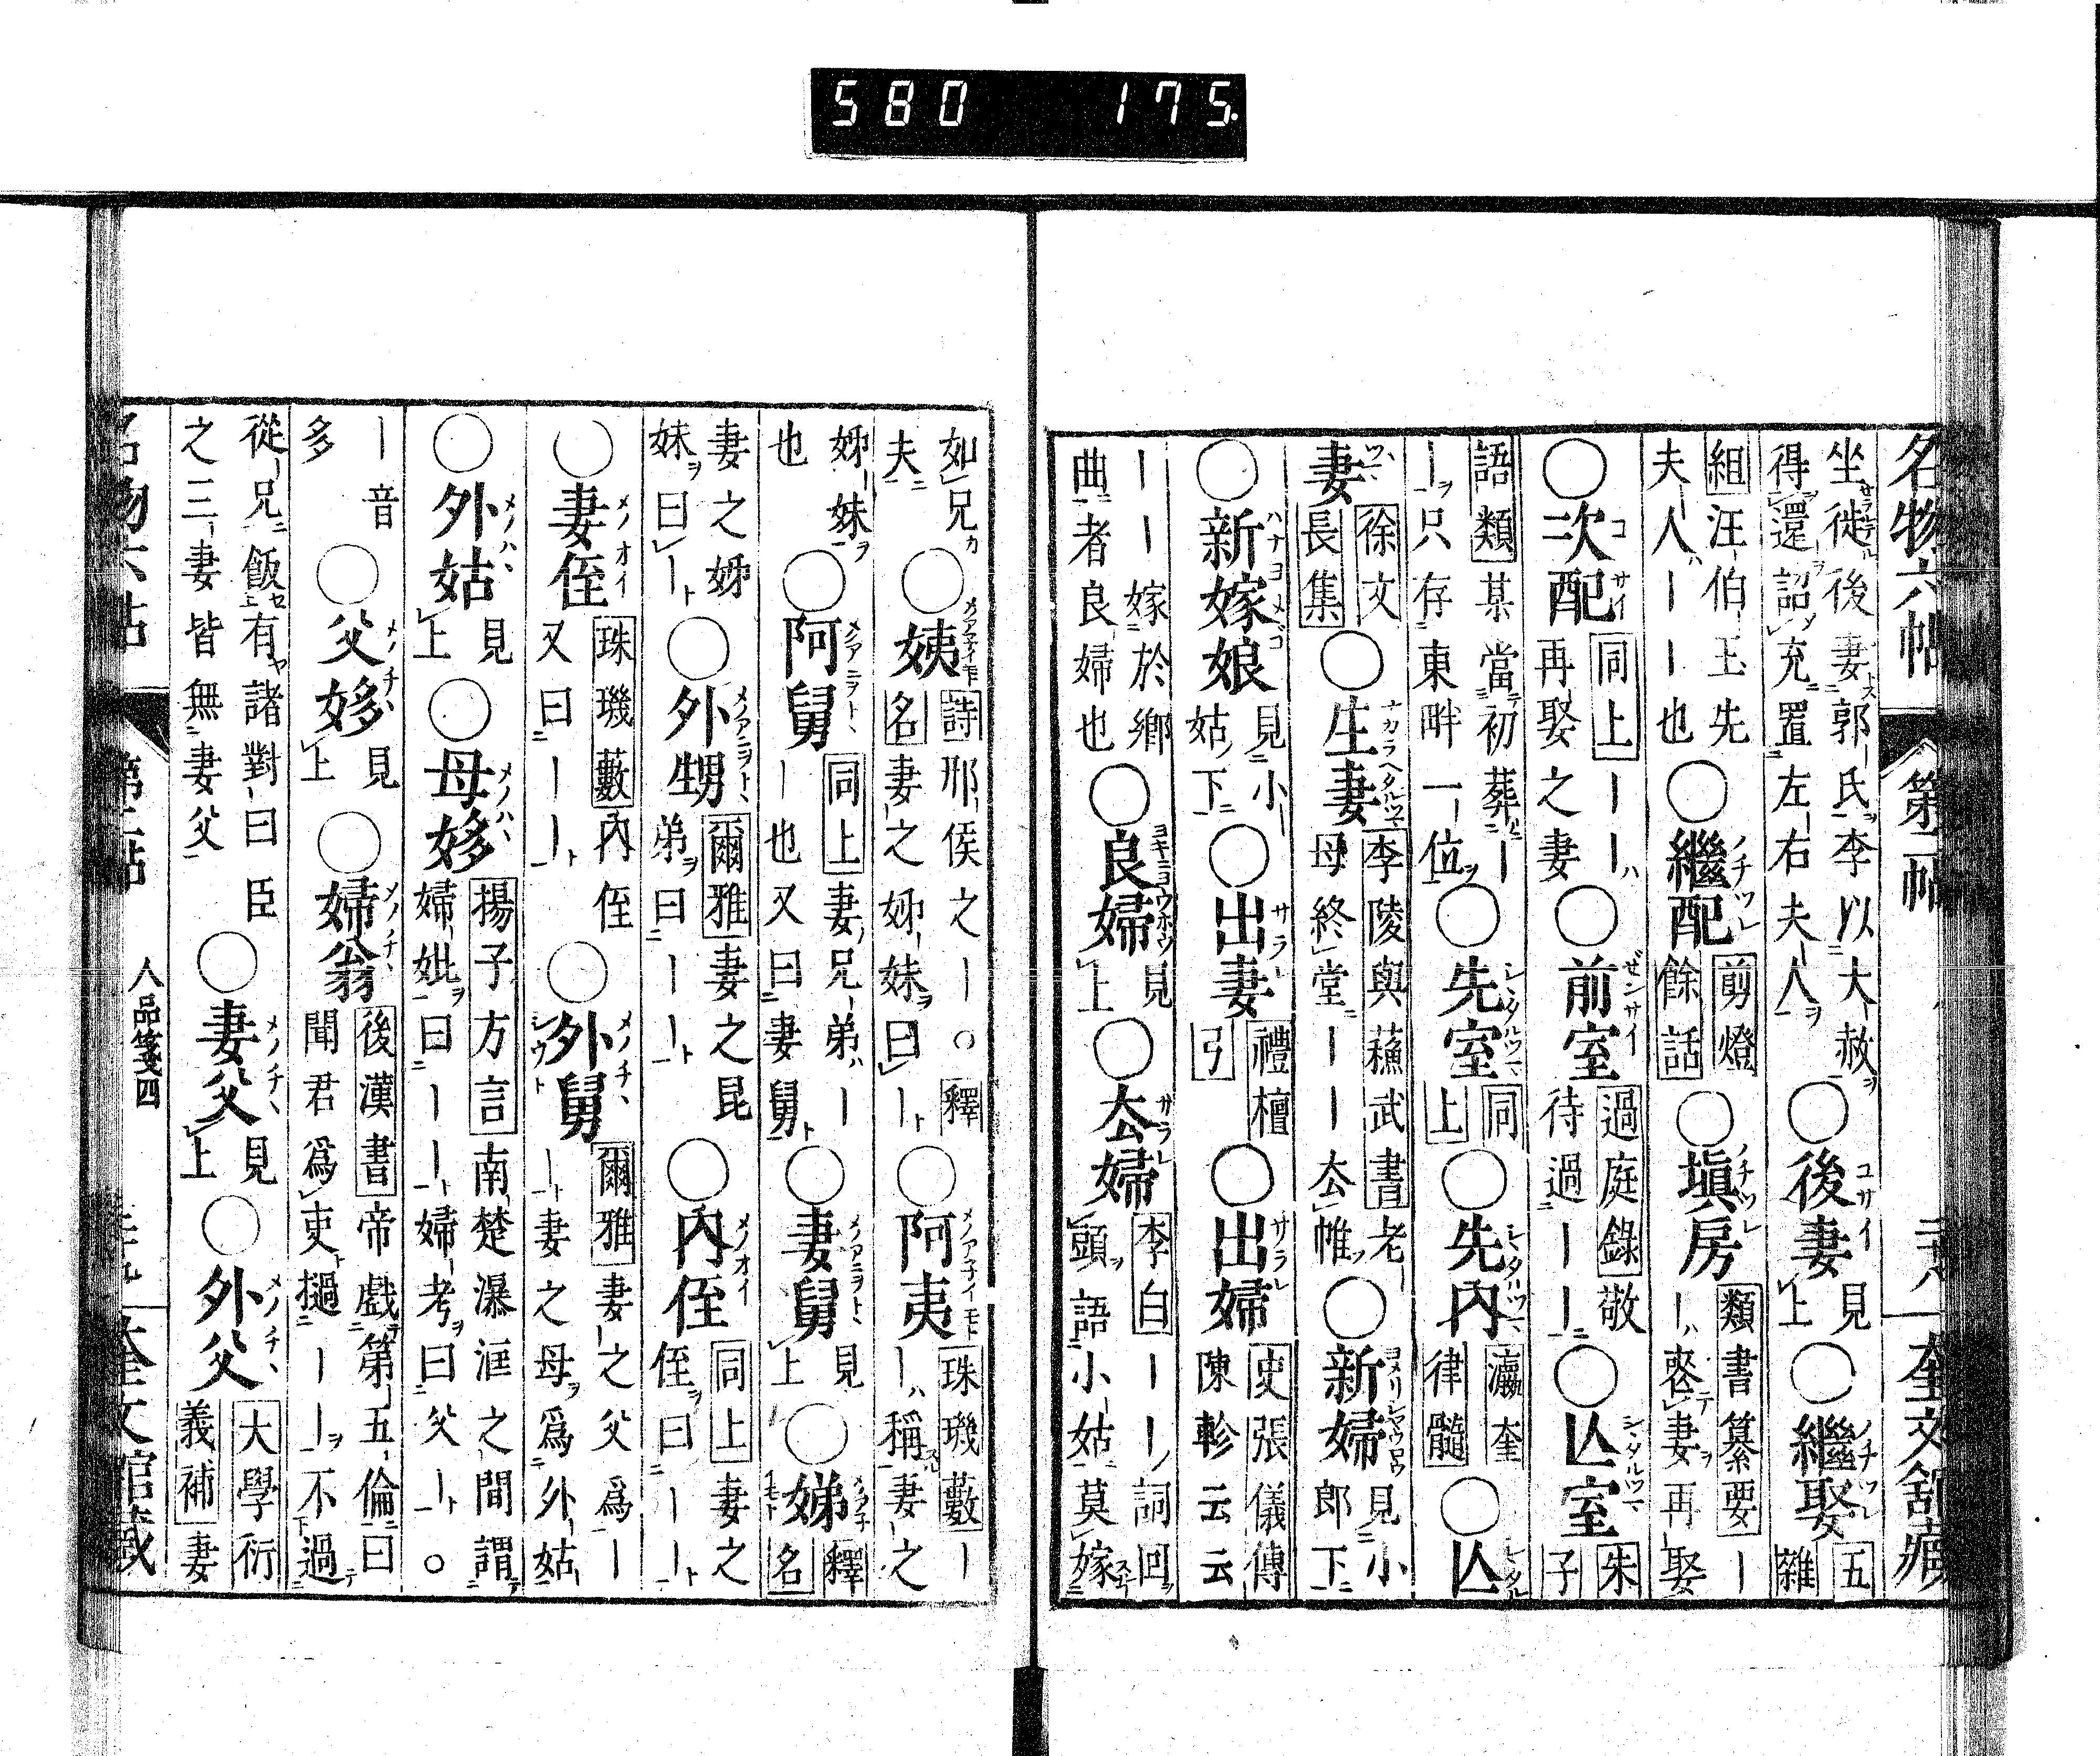 名物六帖 第二帖 二十八 奎文舘藏
坐徙後妻郭氏李以大赦得還詔充置左右夫人○後妻見上○繼娶五雜
組汪伯玉先夫人——也○繼配剪燈餘話○塡房類書纂要——喪妻再娶
○次配同上——再娶之妻○前室過庭錄敬待過——○亾室朱子
語類某當初葬——只存東畔一位○先室同上○先內瀛奎律髓○亾
妻徐文長集○生妻李陵與蘇武書老母終堂——去帷○新婦見小郎下
○新嫁娘見小姑下○出妻禮檀弓○出婦史張儀傳陳軫云云
———嫁於鄉曲者良婦也○良婦見上○去婦李白——詞回頭語小姑莫嫁
如兄夫○姨詩邢侯之—。釋名妻之姊妹曰—○阿夷珠璣藪——稱妻之
姊妹也○阿舅同上妻兄弟——也又曰妻舅○妻舅見上○娣釋名
妻之姊妹曰—○外甥爾雅妻之昆弟曰——○內侄同上妻之侄曰——
○妻侄珠璣藪內侄又曰——○外舅爾雅妻之父爲——妻之母爲外姑
○外姑見上○母姼揚子方言南楚瀑洭之間謂婦妣曰——婦考曰父—。
—音多○父姼見上○婦翁後漢書帝戲第五倫曰聞君爲吏撾——不過
從兄飯有諸對曰臣之三妻皆無妻父○妻父見上○外父大學衍義補妻
名物六帖 第二帖 人品箋四 二十九 奎文館藏
580 175.